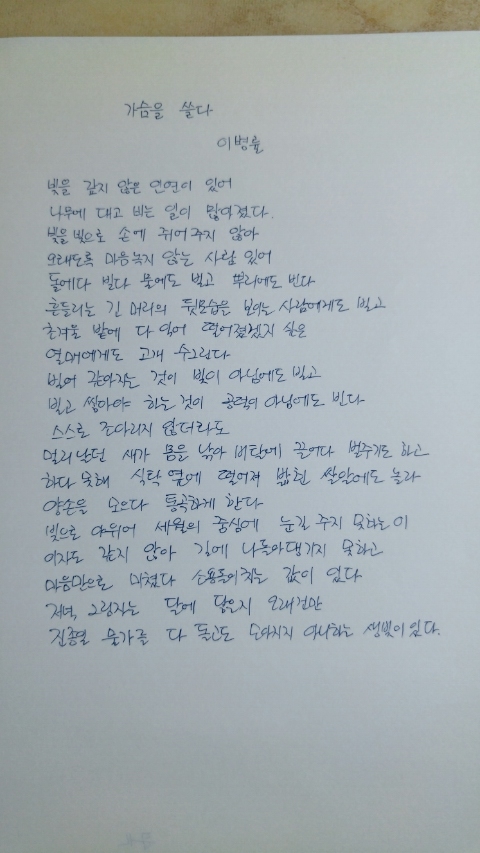 가슴을 쓸다
이병률
빚을 갚지 않은 인연이 있어
나무에 대고 비는 일이 많아졌다.
빚을 빚으로 손에 쥐어주지 않아
오래도록 마음놓지 않는 사람 있어
돌에다 빌다 물에도 빌고 뿌리에도 빈다
흔들리는 긴 머리의 뒷모습을 보이는 사람에게도 빌고
초겨울 밭에 다 익어 떨어졌겠지 싶은
열매에게도 고개 수그린다
빌어 갚아지는 것이 빚이 아님에도 빌고
빌고 쌓아야 하는 것이 공력이 아님에도 빈다
스스로 조아리지 않더라도
멀리 날던 새가 몸을 낮아 바탕에 끌어다 멈추기도 하고
하다 못해 식탁 옆에 떨어져 밟힌 쌀알에도 놀라
양손을 모으다 통곡하게 한다
빚으로 야위어 세월의 중심에 눈길 주지 못하는 이
이자도 갚지 않아 길에 나돌아댕기지 못하고
마음만으로 미쳤다 소용돌이치는 값이 있다
저녁 그림자는 달에 닿은지 오래건만
진종일 물가를 다 돌고도 도와지지 아니하는 생빚이 있다.